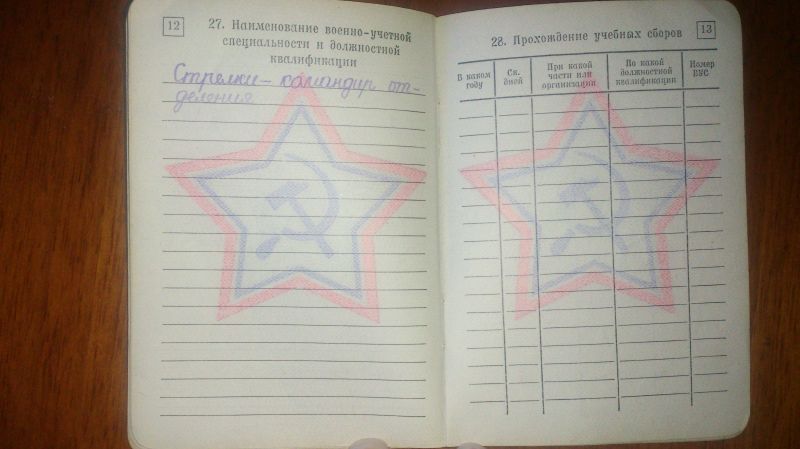 12
27. Наименование военно-учетной
специальности и должностной
квалификации
Стрелки - командир от-
деления
13
28. Прохождение учебных сборов
В каком году
Ск. дней
При какой части или организации
По какой должностной квалификации
Номер ВУС